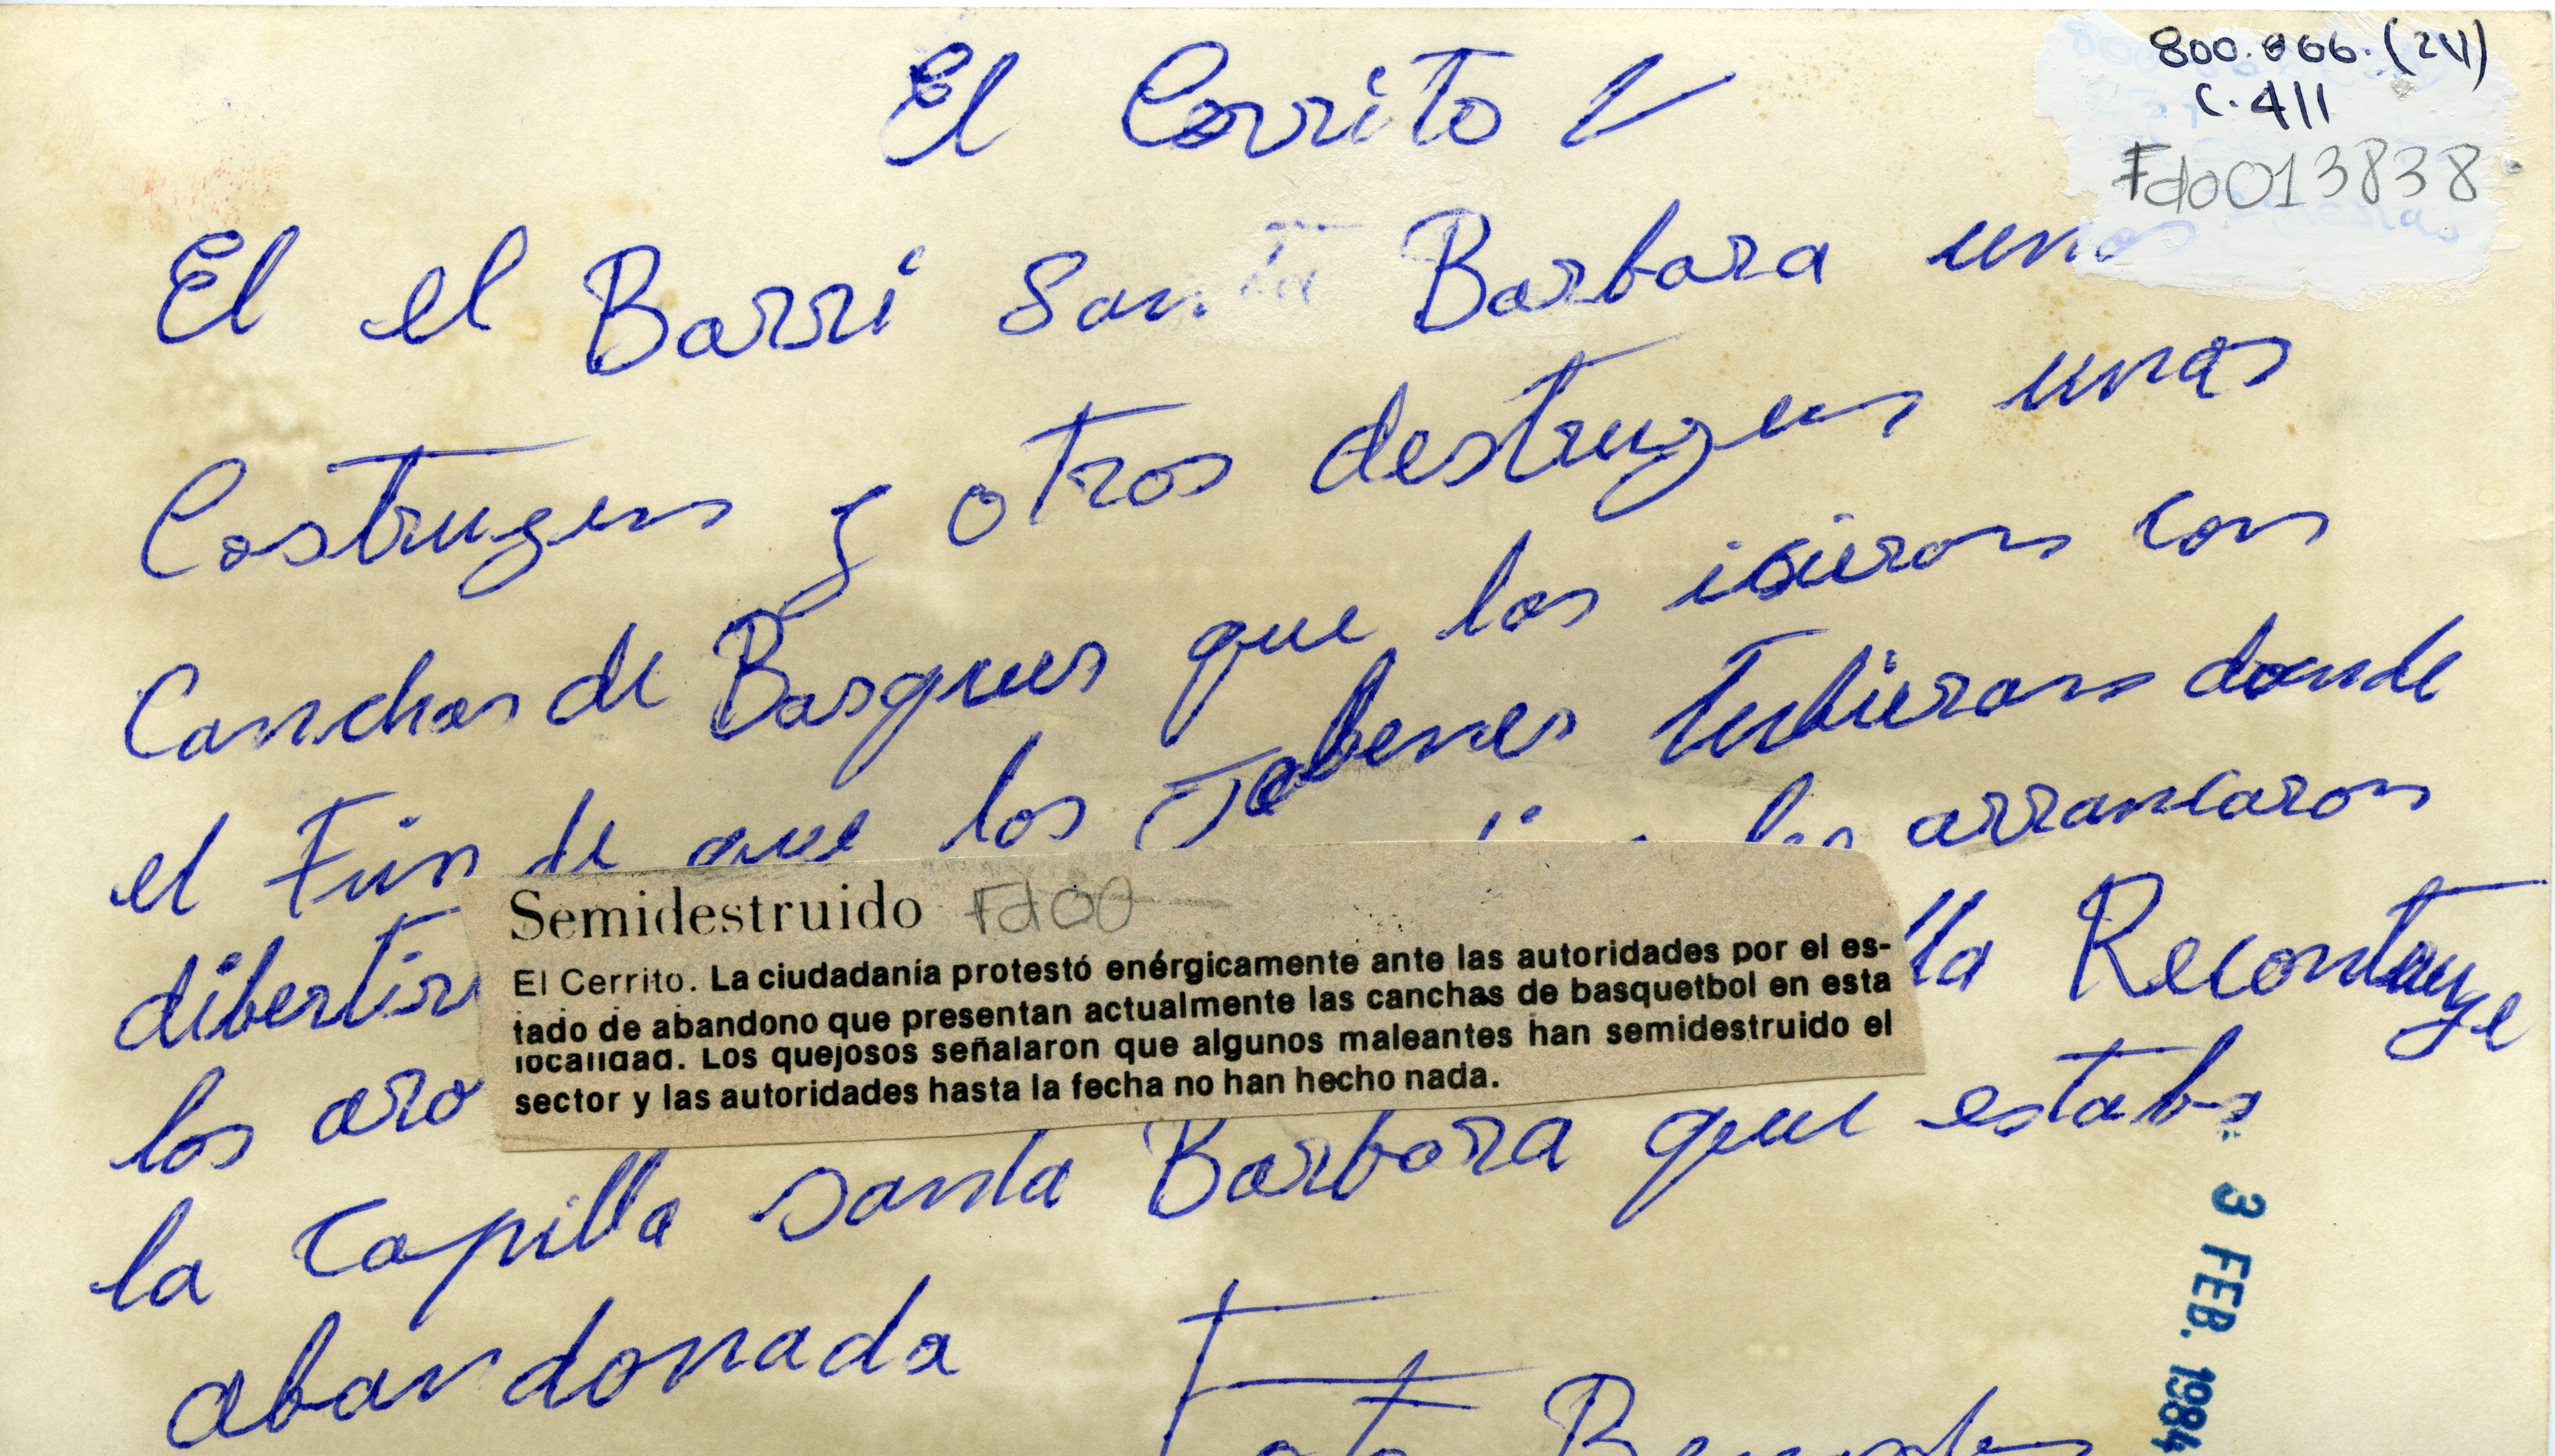 800.066.(24)
C.411
Fdo013838
El Cerrito
El el Barri Santa Barbara unos
Costruyen y otros destruyen unas
Canchas de Basques que los isieron con
el Fin de que los Jobenes tubieron donde
dibertir los arrancaron
los aro lla Recontruye
la Capilla santa Barbara que estaba
abandonada
Foto
Semidestruido Fdo0
El Cerrito. La ciudadanía protestó enérgicamente ante las autoridades por el es-
tado de abandono que presentan actualmente las canchas de basquetbol en esta
localidad. Los quejosos señalaron que algunos maleantes han semidestruido el
sector y las autoridades hasta la fecha no han hecho nada.
3 FEB. 1984